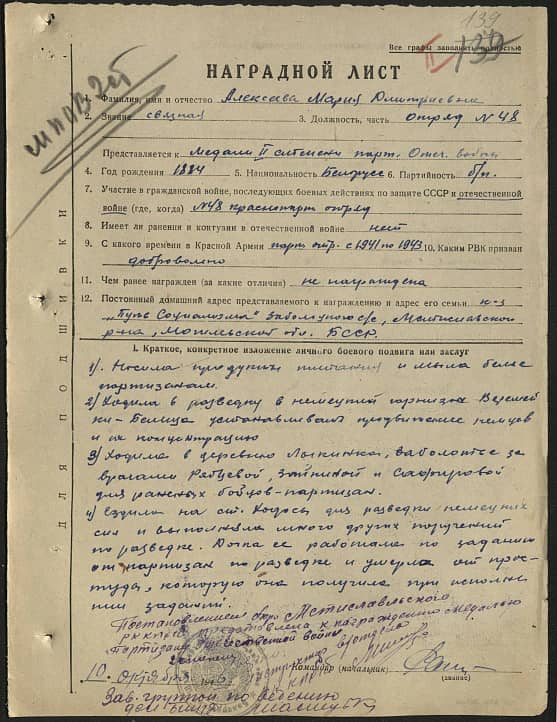 139
139
Все графы заполнять полностью
НАГРАДНОЙ ЛИСТ
1. Фамилия, имя и отчество Алексеева Мария Дмитриевна
2. Звание связная 3. Должность, часть отряд N 48
Представляется к медали II степени парт. Отеч. войны
4. Год рождения 1884 5. Национальность Белорусс 6. Партийность б/п.
7. Участие в гражданской войне, последующих боевых действиях по защите СССР и отечественной
войне (где, когда) N48 отряд
8. Имеет ли ранения и контузии в отечественной войне нет
9. С какого времени в Красной Армии парт. отр. с 1941 по 1943 10. Каким РВК призван
добровольно
11. Чем ранее награжден (за какие отличия) не награждена
12. Постоянный домашний адрес представляемого к награждению и адрес его семьи к-з
"Путь Социализма" с/с, Мстиславского
р-на, Могилевской обл. БССР.
ДЛЯ ПОДШИВКИ
I. Краткое, конкретное изложение личного боевого подвига или заслуг
1). Носила продукты питания и мыла белье
партизанам.
2) Ходила в разведку в немецкий гарнизон
Белица устанавливать продвижение немцев
и их концентрацию
3) Ходила в деревню Заболотье за
врагами и
для раненых бойцов-партизан.
4) Ездила на ст. Ходосы для разведки немецких
сил и выполняла много других поручений
по разведке. Дочка ее работала по заданию
от партизан по разведке и умерла от прос-
туды, которую она получила при исполне-
нии заданий.
Постановлением бюро Мстиславльского
РК КП(б)Б представлена к награждению медалью
Партизану Отечественной войны
II степени
Командир (начальник)
(звание)
10 октября
Зав. группой по ведению